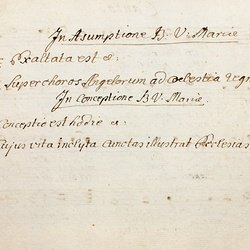 In Asumptione B. V. Mariæ
Exaltata est &:
super choros Angelorum ad Cœlestia regn
In Conceptione B V. Mariæ
Conceptio est hodie &:
cujus vita inclyta cunctas illustrat Ecclesias